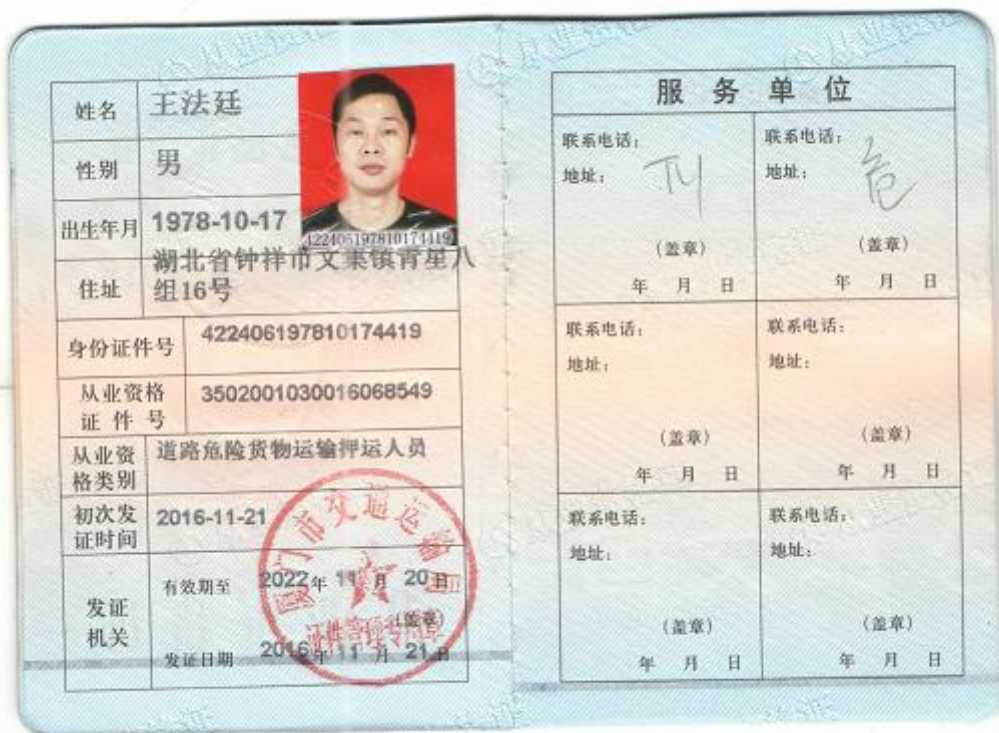 姓名 王法廷
性别 男
出生年月 1978-10-17
422406197810174419
住址 湖北省钟祥市文集镇青星八
组16号
身份证件号 422406197810174419
从业资格
证件号 3502001030016068549
从业资
格类别 道路危险货物运输押运人员
初次发
证时间 2016-11-21
发证
机关
有效期至 2022年11月20日
(盖章)
发证日期 2016年11月21日
厦门市交通运输局
证件管理专用章
服务单位
联系电话:
地址:
(盖章)
年 月 日
联系电话:
地址: 危
(盖章)
年 月 日
联系电话:
地址:
(盖章)
年 月 日
联系电话:
地址:
(盖章)
年 月 日
联系电话:
地址:
(盖章)
年 月 日
联系电话:
地址:
(盖章)
年 月 日